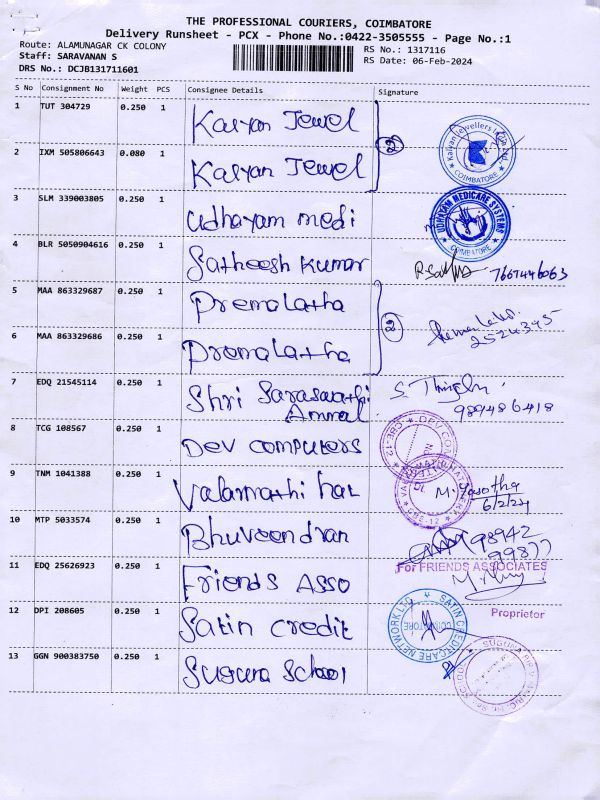 THE PROFESSIONAL COURIERS, COIMBATORE
Delivery Runsheet - PCX - Phone No.:0422-3505555 - Page No.:1
Route: ALAMUNAGAR CK COLONY
RS No.: 1317116
Staff: SARAVANAN S
RS Date: 06-Feb-2024
DRS No.: DCJB131711601
S No Consignment No Weight PCS Consignee Details Signature
1 TUT 304729 0.250 1 Kalyan Jewel
2 IXM 505806643 0.080 1 Kalyan Jewel
Kalyan Jewellers COIMBATORE
3 SLM 339003805 0.250 1 Udhayam medi
UDHAYAM MEDICARE SYSTEMS COIMBATORE
4 BLR 5050904616 0.250 1 Satheesh Kumar
5 MAA 863329687 0.250 1 Premalatha
6 MAA 863329686 0.250 1 Premalatha
2524395
7 EDQ 21545114 0.250 1 Shri Saraswathi
Ammal
989486418
8 TCG 108567 0.250 1 Dev computers
CBE-12
9 TNM 1041388 0.250 1 Valarmathi
M. Yasotha
6/2/24
CBE-12
10 MTP 5033574 0.250 1 Bhuveendran
98942
99877
11 EDQ 25626923 0.250 1 Friends Asso
For FRIENDS ASSOCIATES
Proprietor
12 DPI 208605 0.250 1 Satin credit
SATIN CREDITCARE NETWORK LTD
COIMBATORE
13 GGN 900383750 0.250 1 Suguna School
SUGUNA